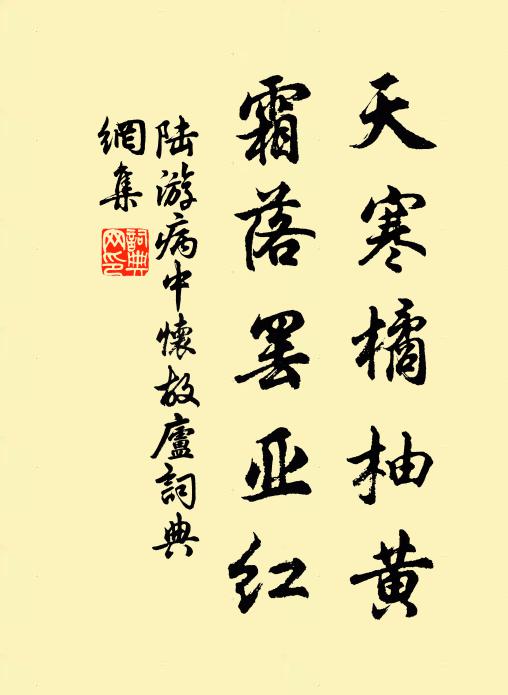 天寒橘柚黄
霜落罢亚红
陆游病中懷故廬詞典
網集
詞典
网印